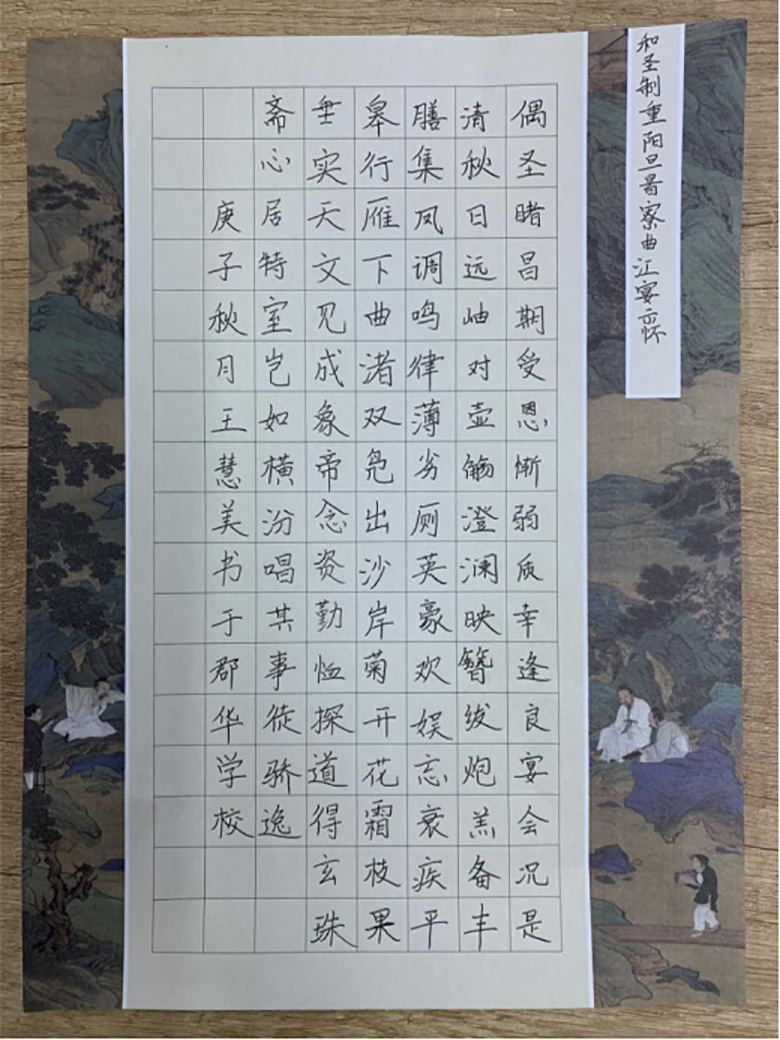 和圣制重阳旦日百寮曲江宴示怀
偶圣睹昌期受恩惭弱质幸逢良宴会况是
清秋日远岫对壶觞澄澜映簪绂炮羔备丰
膳集凤调鸣律薄劣厕英豪欢娱忘衰疾平
皋行雁下曲渚双凫出沙岸菊开花霜枝果
垂实天文见成象帝念资勤恤探道得玄珠
斋心居特室岂如横汾唱其事徒骄逸
庚子秋月王慧美书于郡华学校